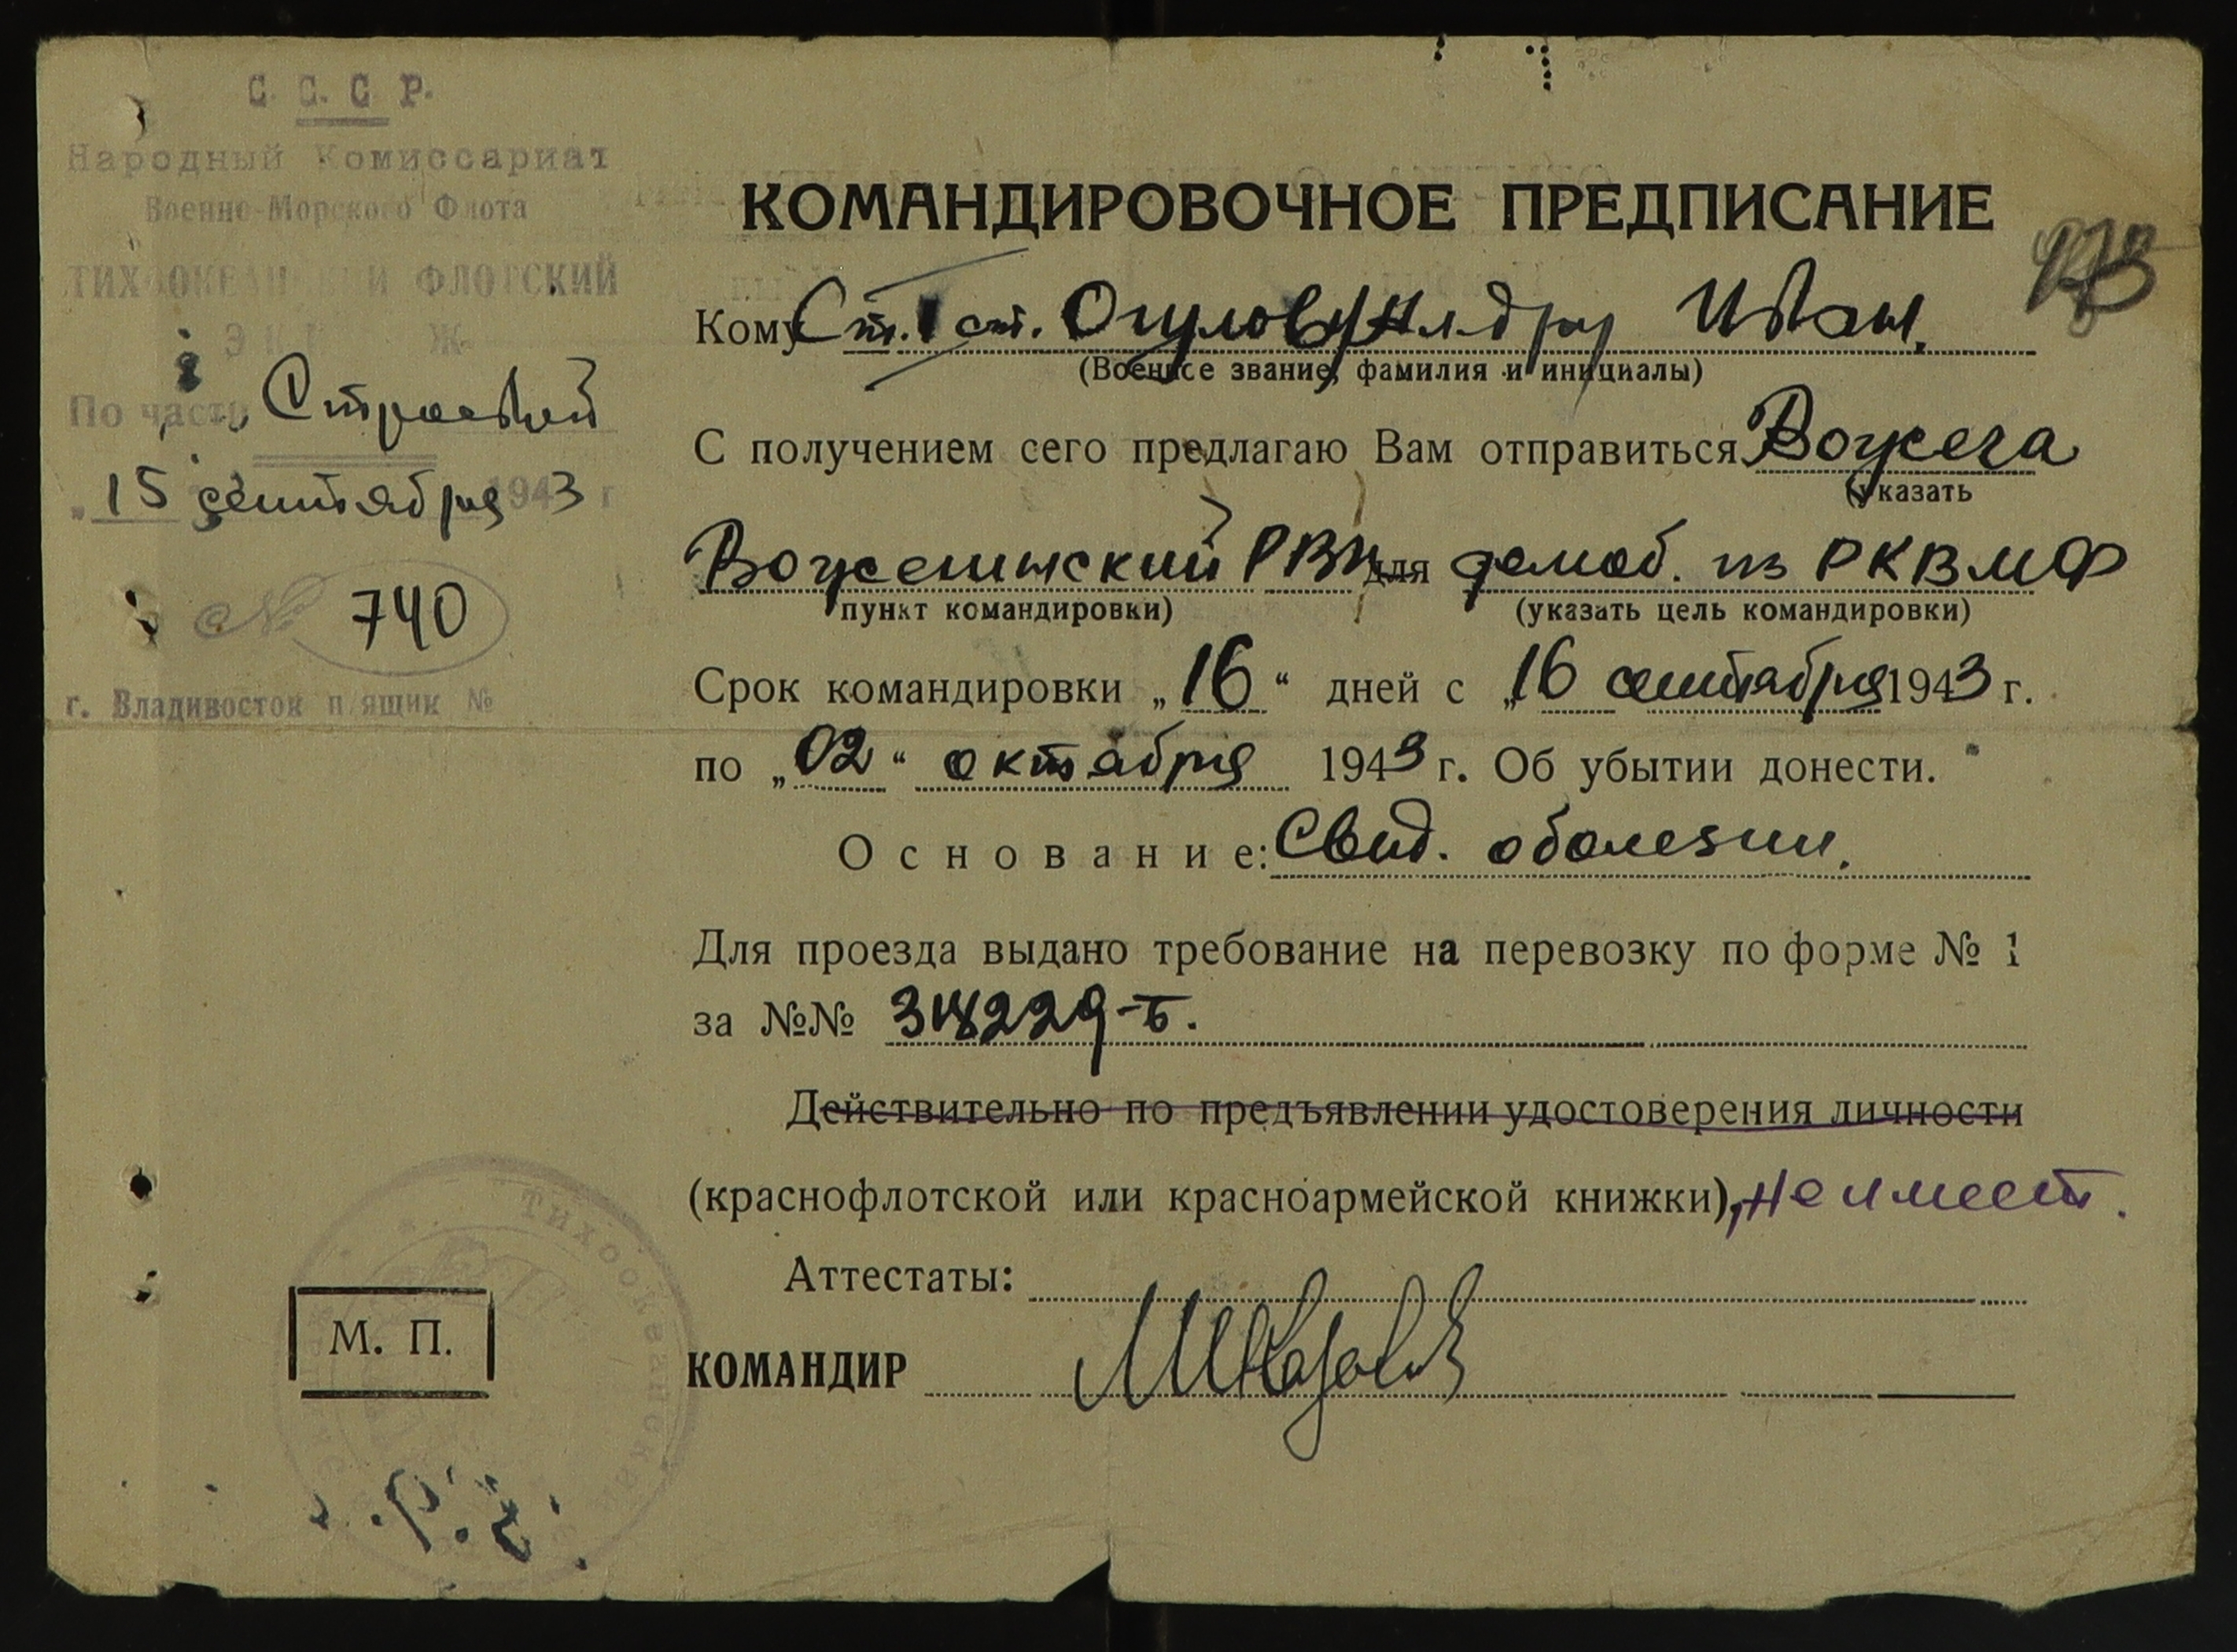 С. С. С. Р.
Народный Комиссариат
Военно-Морского Флота
ТИХООКЕАНСКИЙ ФЛОТСКИЙ
По части Строевой
„15 сентября 1943 г
№ 740
г. Владивосток п/ящик №
КОМАНДИРОВОЧНОЕ ПРЕДПИСАНИЕ
Кому Ст. 1 ст. Огулову Ал-дру Иван.
(Военное звание, фамилия и инициалы)
С получением сего предлагаю Вам отправиться Вожега
(указать
Вожегинский РВК для демоб. из РКВМФ
пункт командировки) (указать цель командировки)
Срок командировки „16“ дней с „16 сентября 1943 г.
по „02“ октября 1943 г. Об убытии донести.
Основание: Свид. оболезни.
Для проезда выдано требование на перевозку по форме № 1
за №№ 318229-Б.
Действительно по предъявлении удостоверения личности
(краснофлотской или красноармейской книжки), не имеет.
Аттестаты:
КОМАНДИР
М. П.
Тихоокеанский